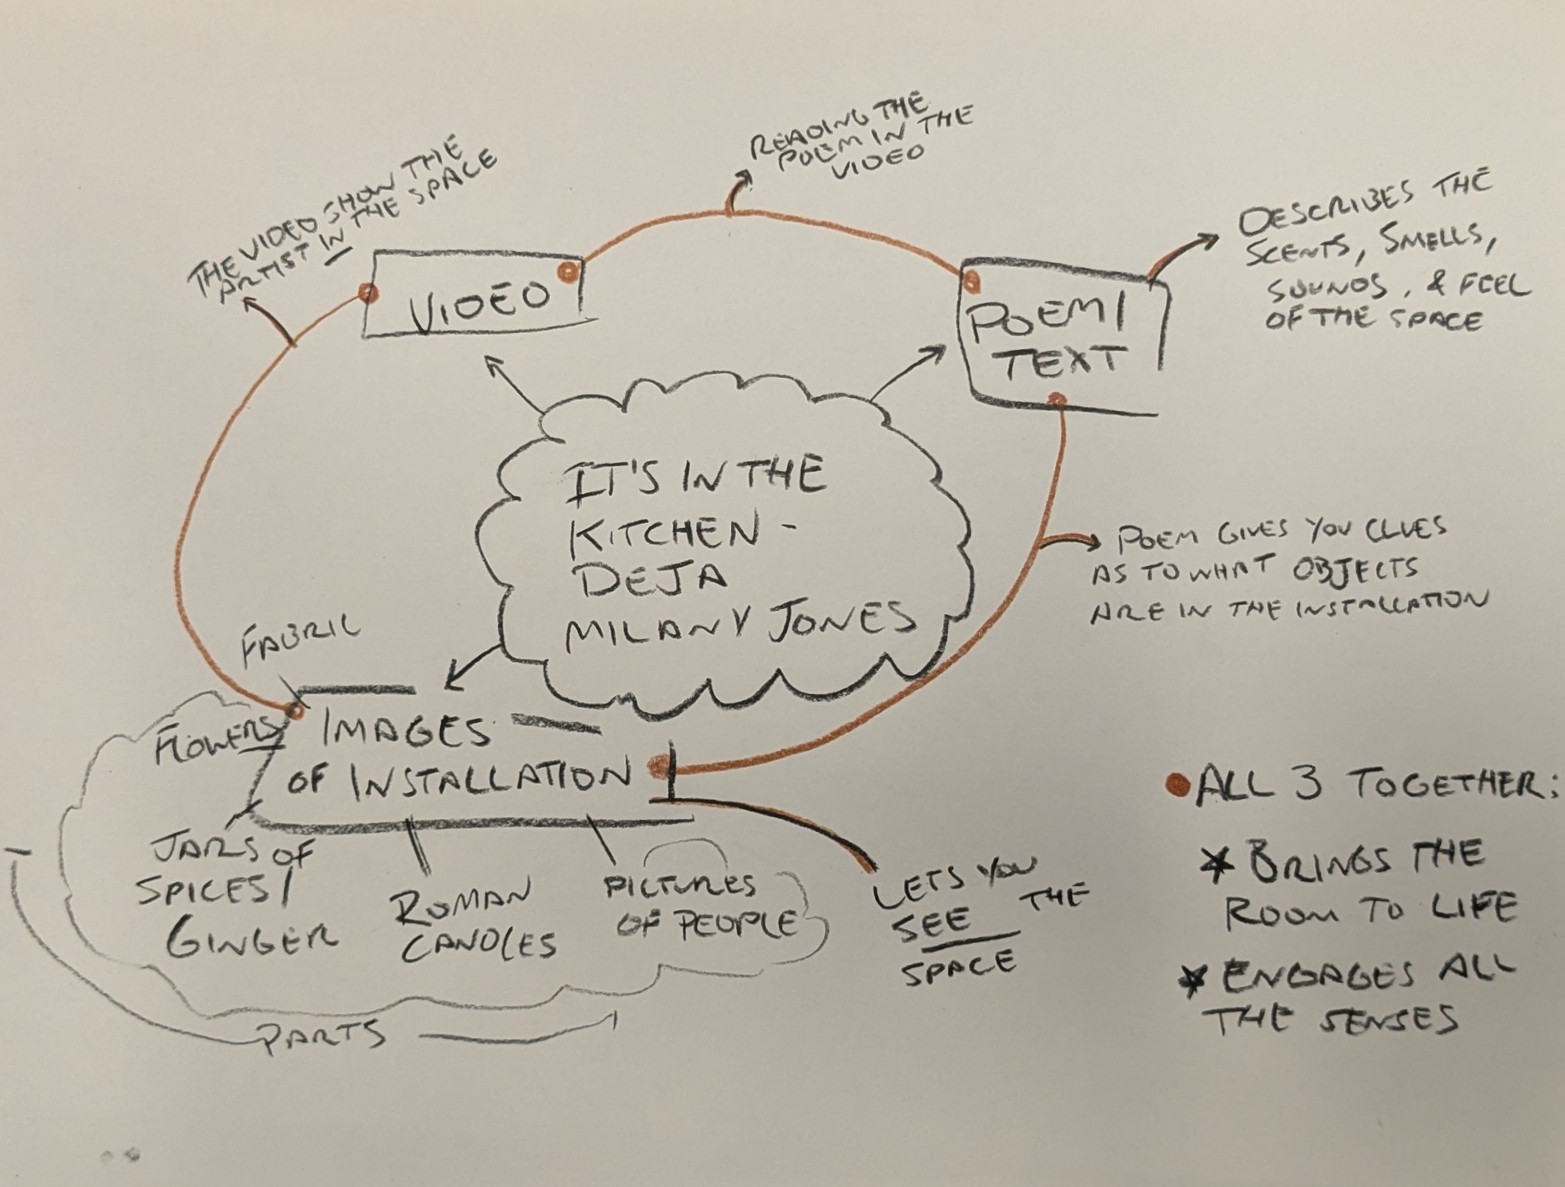 THE VIDEO SHOW THE
ARTIST IN THE SPACE
READING THE
POEM IN THE
VIDEO
DESCRIBES THE
SCENTS, SMELLS,
SOUNDS, & FEEL
OF THE SPACE
VIDEO
POEM/
TEXT
IT'S IN THE
KITCHEN -
DEJA
MILANY JONES
POEM GIVES YOU CLUES
AS TO WHAT OBJECTS
ARE IN THE INSTALLATION
FABRIC
FLOWERS
IMAGES
OF INSTALLATION
JARS OF
SPICES/
GINGER
ROMAN
CANDLES
PICTURES
OF PEOPLE
LETS YOU
SEE THE
SPACE
PARTS
ALL 3 TOGETHER:
* BRINGS THE
ROOM TO LIFE
* ENGAGES ALL
THE SENSES